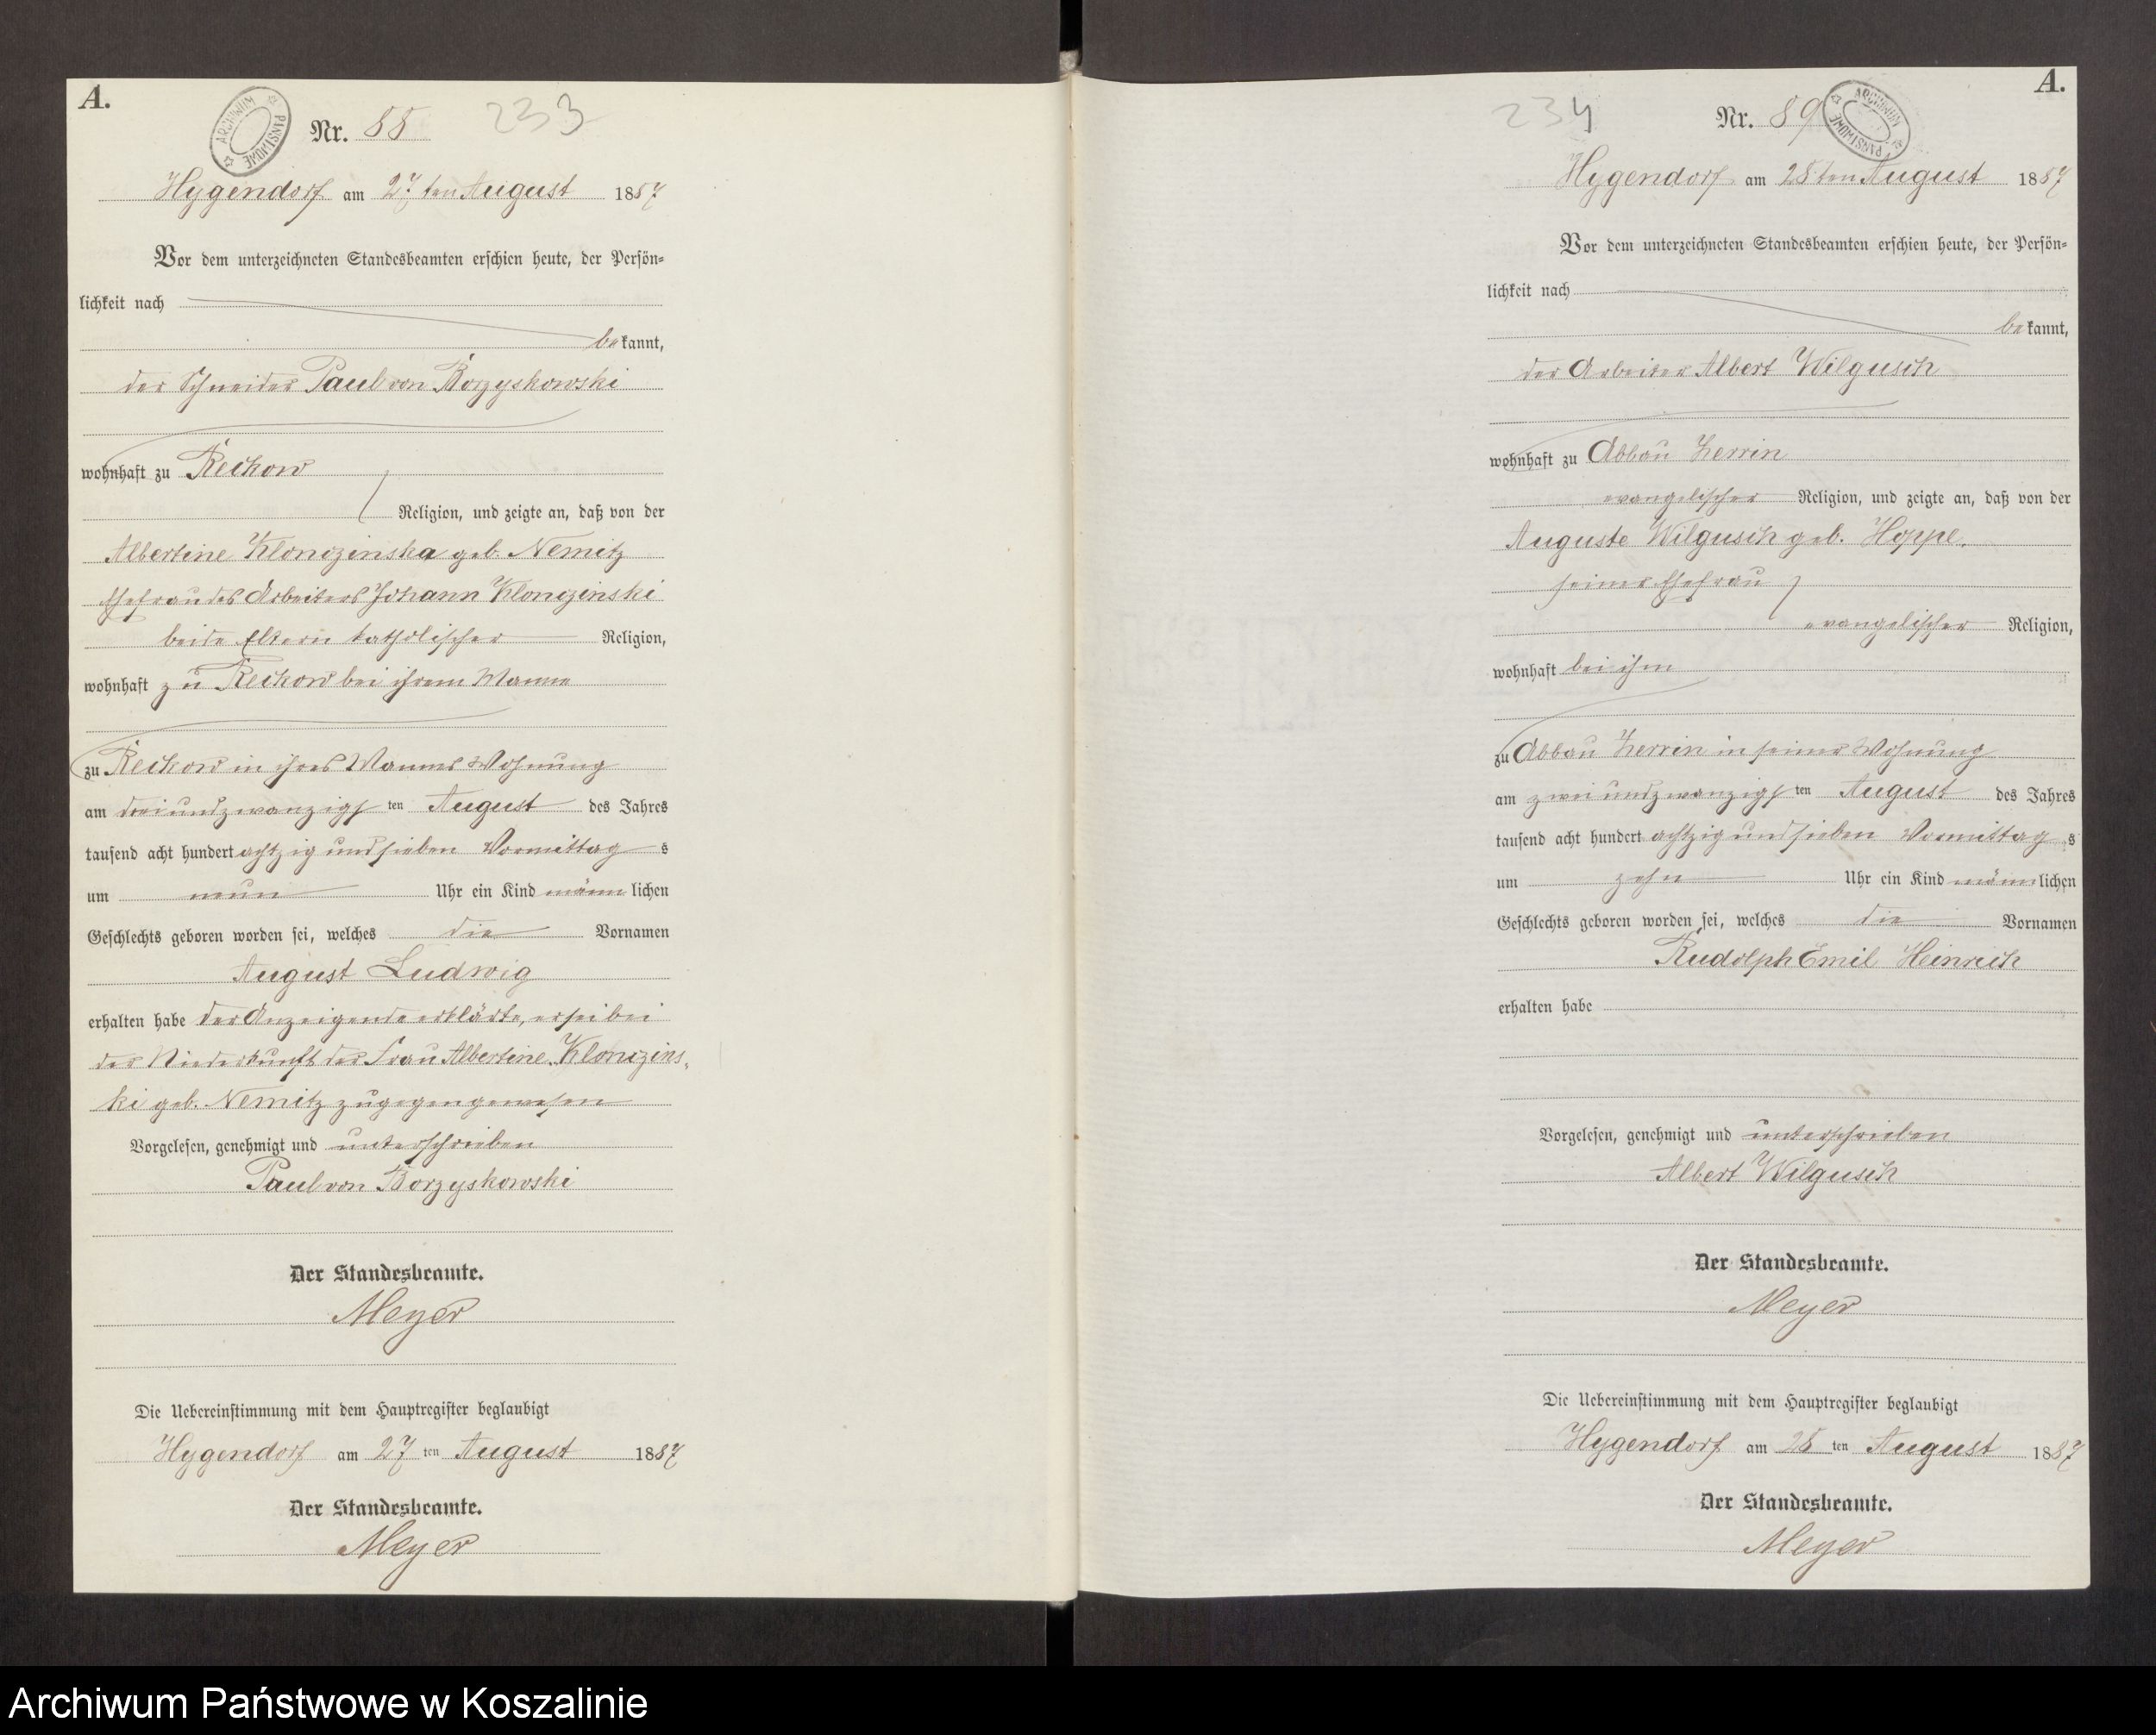 A.
ARCHIWUM PAŃSTWOWE
Nr. 88
233
Hygendorf am 27ten August 1887
Vor dem unterzeichneten Standesbeamten erschien heute, der Persön-
lichkeit nach
bekannt,
der Schneider Paul von Borzyskowski
wohnhaft zu Reckow
Religion, und zeigte an, daß von der
Albertine Klonczinska geb. Nemitz
Ehefrau des Arbeiters Johann Klonczinski
beide Eltern katholischer Religion,
wohnhaft zu Reckow bei ihrem Manne
zu Reckow in ihres Mannes Wohnung
am dreiundzwanzigsten August des Jahres
tausend acht hundert achtzig und sieben Vormittags
um neun Uhr ein Kind männlichen
Geschlechts geboren worden sei, welches die Vornamen
August Ludwig
erhalten habe der Anzeigende erklärte, er sei bei
der Niederkunft der Frau Albertine Klonczins-
ki geb. Nemitz zugegen gewesen
Vorgelesen, genehmigt und unterschrieben
Paul von Borzyskowski
Der Standesbeamte.
Meyer
Die Uebereinstimmung mit dem Hauptregister beglaubigt
Hygendorf am 27ten August 1887
Der Standesbeamte.
Meyer
A.
234
Nr. 89
ARCHIWUM PAŃSTWOWE
Hygendorf am 28ten August 1887
Vor dem unterzeichneten Standesbeamten erschien heute, der Persön-
lichkeit nach
bekannt,
der Arbeiter Albert Wilgusch
wohnhaft zu Abbau Zerrin
evangelischer Religion, und zeigte an, daß von der
Auguste Wilgusch geb. Hoppe,
seiner Ehefrau
evangelischer Religion,
wohnhaft bei ihm
zu Abbau Zerrin in seiner Wohnung
am zweiundzwanzigsten August des Jahres
tausend acht hundert achtzig und sieben Vormittags
um zehn Uhr ein Kind männlichen
Geschlechts geboren worden sei, welches die Vornamen
Rudolph Emil Heinrich
erhalten habe
Vorgelesen, genehmigt und unterschrieben
Albert Wilgusch
Der Standesbeamte.
Meyer
Die Uebereinstimmung mit dem Hauptregister beglaubigt
Hygendorf am 28ten August 1887
Der Standesbeamte.
Meyer
Archiwum Państwowe w Koszalinie